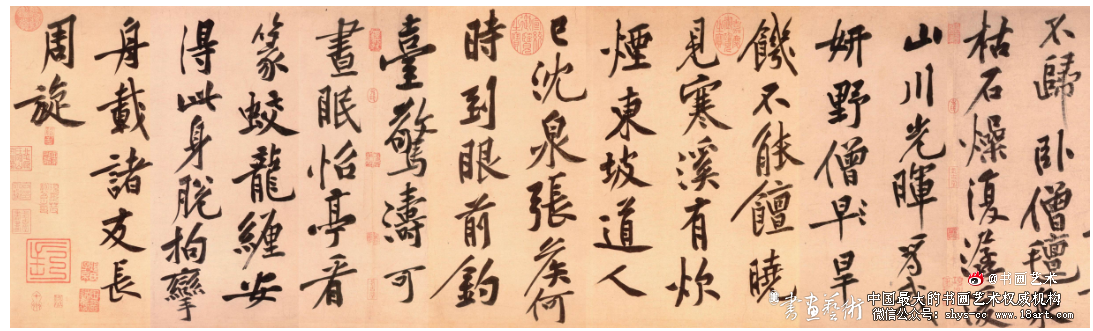 不歸臥僧氈泉
枯石燥復潺湲
山川光暉為我
妍野僧早早
饑不能饘曉
見寒溪有炊
煙東坡道人
已沈泉張侯何
時到眼前釣
臺驚濤可
晝眠怡亭看
篆蛟龍纏安
得此身脫拘攣
舟載諸友長
周旋
@书画艺术
書畫藝術 中国最大的书画艺术权威机构
微信公众号：shys-cc www.18art.com